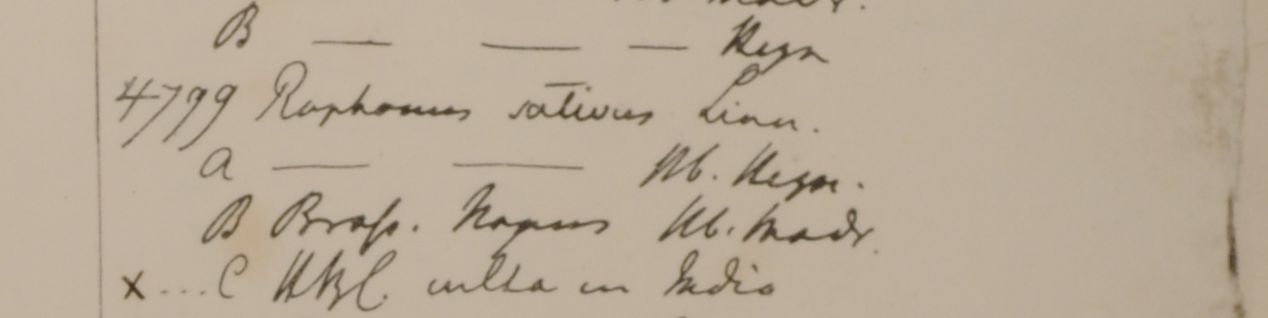 B — — — Heyn
4799 Raphanus sativus Linn.
a — — Hb. Heyn.
B Brass. Napus Hb. Madr.
x...C HBC. culta in India